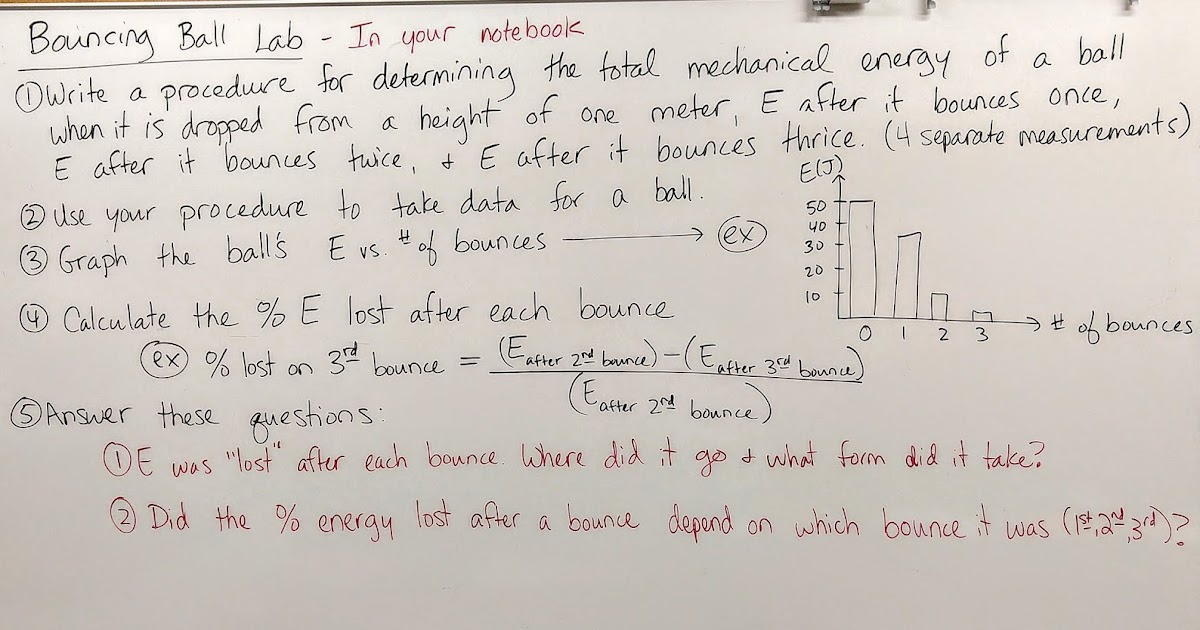 Bouncing Ball Lab - In your notebook
① Write a procedure for determining the total mechanical energy of a ball
when it is dropped from a height of one meter, E after it bounces once,
E after it bounces twice, + E after it bounces thrice. (4 separate measurements)
② Use your procedure to take data for a ball.
③ Graph the ball's E vs. # of bounces → ex
E(J)
50
40
30
20
10
0 1 2 3
# of bounces
④ Calculate the % E lost after each bounce
ex % lost on 3rd bounce = (E after 2nd bounce) - (E after 3rd bounce)
(E after 2nd bounce)
⑤ Answer these questions:
① E was "lost" after each bounce. Where did it go + what form did it take?
② Did the % energy lost after a bounce depend on which bounce it was (1st, 2nd, 3rd)?